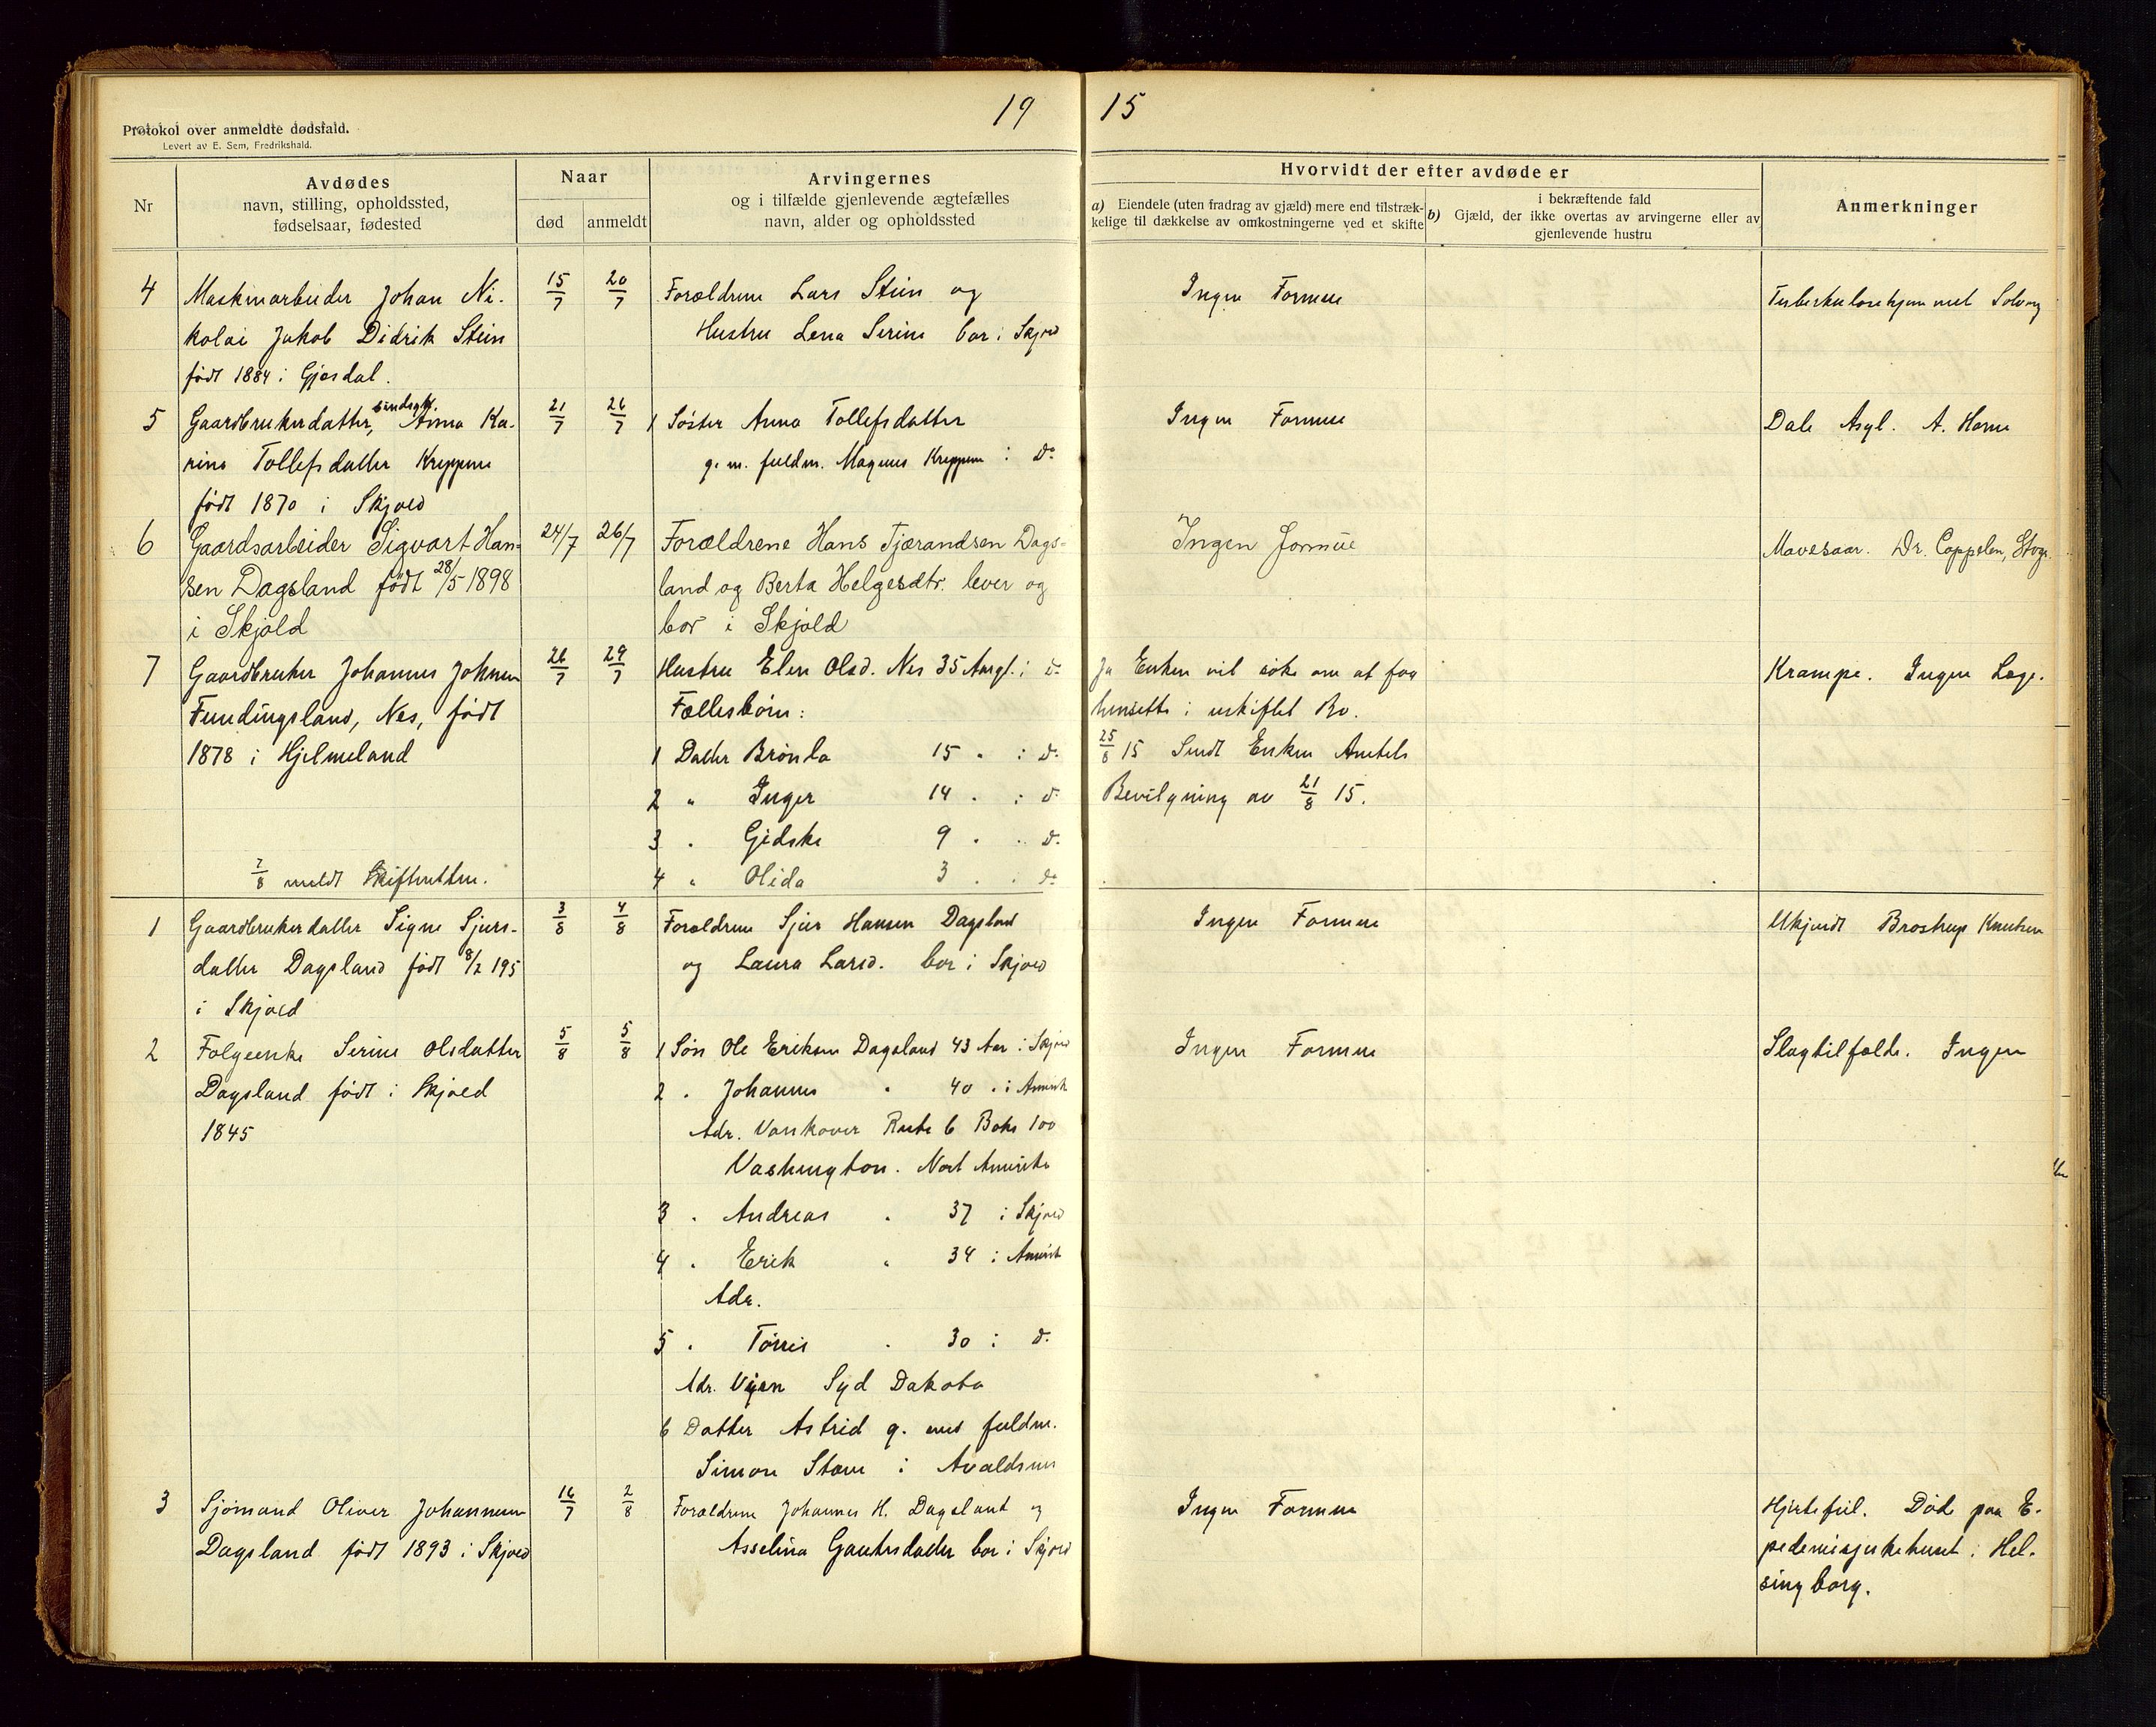 19 15
Protokol over anmeldte dødsfald.
Levert av E. Sem, Fredrikshald.
Nr
Avdødes
navn, stilling, opholdssted,
fødselsaar, fødested
Naar
død anmeldt
Arvingernes
og i tilfælde gjenlevende ægtefælles
navn, alder og opholdssted
Hvorvidt der efter avdøde er
a) Eiendele (uten fradrag av gjæld) mere end tilstræk-
kelige til dækkelse av omkostningerne ved et skifte
i bekræftende fald
b) Gjæld, der ikke overtas av arvingerne eller av
gjenlevende hustru
Anmerkninger
4 Maskinarbeider Johan Ni- 15/7 20/7 Forældrene Lars Stein og Ingen Formue Tuberkulosehjemmet Solvang
kolai Jakob Didrik Stein Hustru Lena Serine bor i Skjold
født 1884 i Gjesdal.
5 Gaardbrukerdatter, sindsyk. Anna Ka- 21/7 26/7 1 Søster Anna Tollefsdatter Ingen Formue Dale Asyl. A. Horne
rina Tollefsdatter Kreppene g. m. fuldm. Magnus Kreppene i Do
født 1870 i Skjold
6 Gaardsarbeider Sigvart Han- 24/7 26/7 Forældrene Hans Tjærandsen Dags- Ingen Formue Mavesaar. Dr. Coppelen, Stvgr.
sen Dagsland født 28/5 1898 land og Berta Helgesdtr. lever og
i Skjold bor i Skjold
7 Gaardbruker Johannes Johnsen 26/7 29/7 Hustru Elen Olsd. Nes 35 Aar gl. i do Ja Enken vil søke om at faa Krampe. Ingen Læge.
Fundingsland, Nes, født Fællesbørn: hensitte i uskiftet Bo.
1878 i Hjelmeland 1 Datter Brønla 15 " i do 25/8 15 Sendt Enken Amtets
2 " Inger 14 " i do Bevilgning av 21/8 15.
3 " Gidske 9 " " do
2/8 meldt Skifteretten. 4 " Olida 3 " " do
1 Gaardbrukerdatter Signe Sjurs- 3/8 4/8 Forældrene Sjur Hansen Dagsland Ingen Formue Ukjendt Brostrup Knutsen
datter Dagsland født 8/2 195 og Laura Larsd. bor i Skjold
i Skjold
2 Folgeenke Serine Olsdatter 5/8 5/8 1 Søn Ole Eriksen Dagsland 43 Aar i Skjold Ingen Formue Slagtilfælde. Ingen
Dagsland født i Skjold 2 " Johannes " 40 " i Amerik
1845 Adr. Vankover Rute 6 Boks 100
Vashington. Nort Amerika
3 " Andreas " 37 i Skjold
4 " Erik " 34 i Amerik
Adr.
5 " Tørris " 30 i do
Adr. Syd Dakota
6 Datter Astrid g. med fuldm.
Simon Stave i Avaldsnes
3 Sjømand Oliver Johannesen 16/7 2/8 Forældrene Johannes H. Dagsland og Ingen Formue Hjertefeil. Død paa E-
Dagsland født 1893 i Skjold Asselina Gautesdatter bor i Skjold pedemisjukehuset i Hel-
singborg.